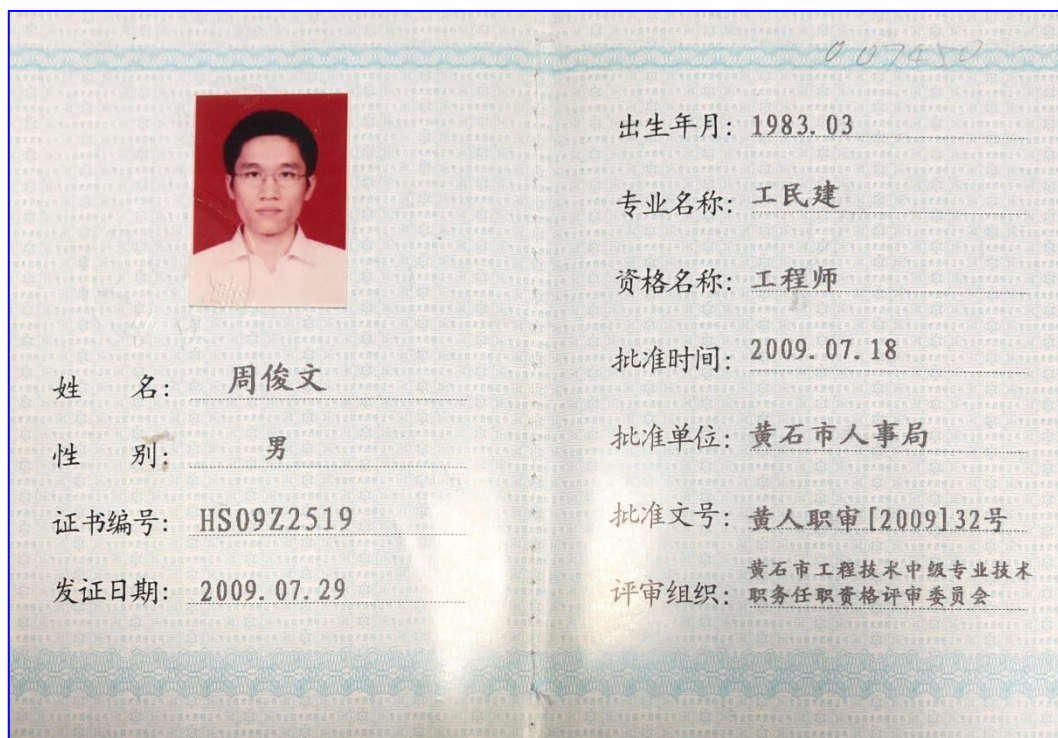 姓 名: 周俊文
性 别: 男
证书编号: HS09Z2519
发证日期: 2009.07.29
007450
出生年月: 1983.03
专业名称: 工民建
资格名称: 工程师
批准时间: 2009.07.18
批准单位: 黄石市人事局
批准文号: 黄人职审[2009]32号
评审组织: 黄石市工程技术中级专业技术
职务任职资格评审委员会